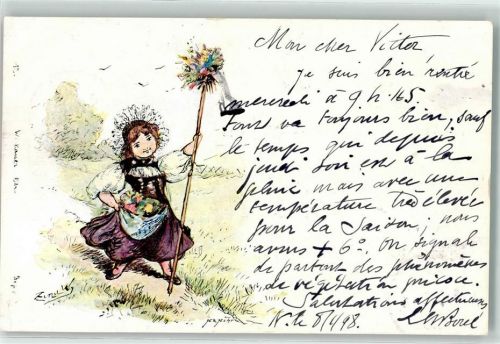 Mon cher Victor
je suis bien rentré
mercredi à 9 h. 165
Tout va toujours bien, sauf
le temps qui depuis
jeudi soir est à la
pluie mais avec une
température très élevée
pour la saison; nous
avons + 6°. On signale
de partout des phénomènes
de végétation précoce.
Salutations affectueuses
N. le 8/1/98.